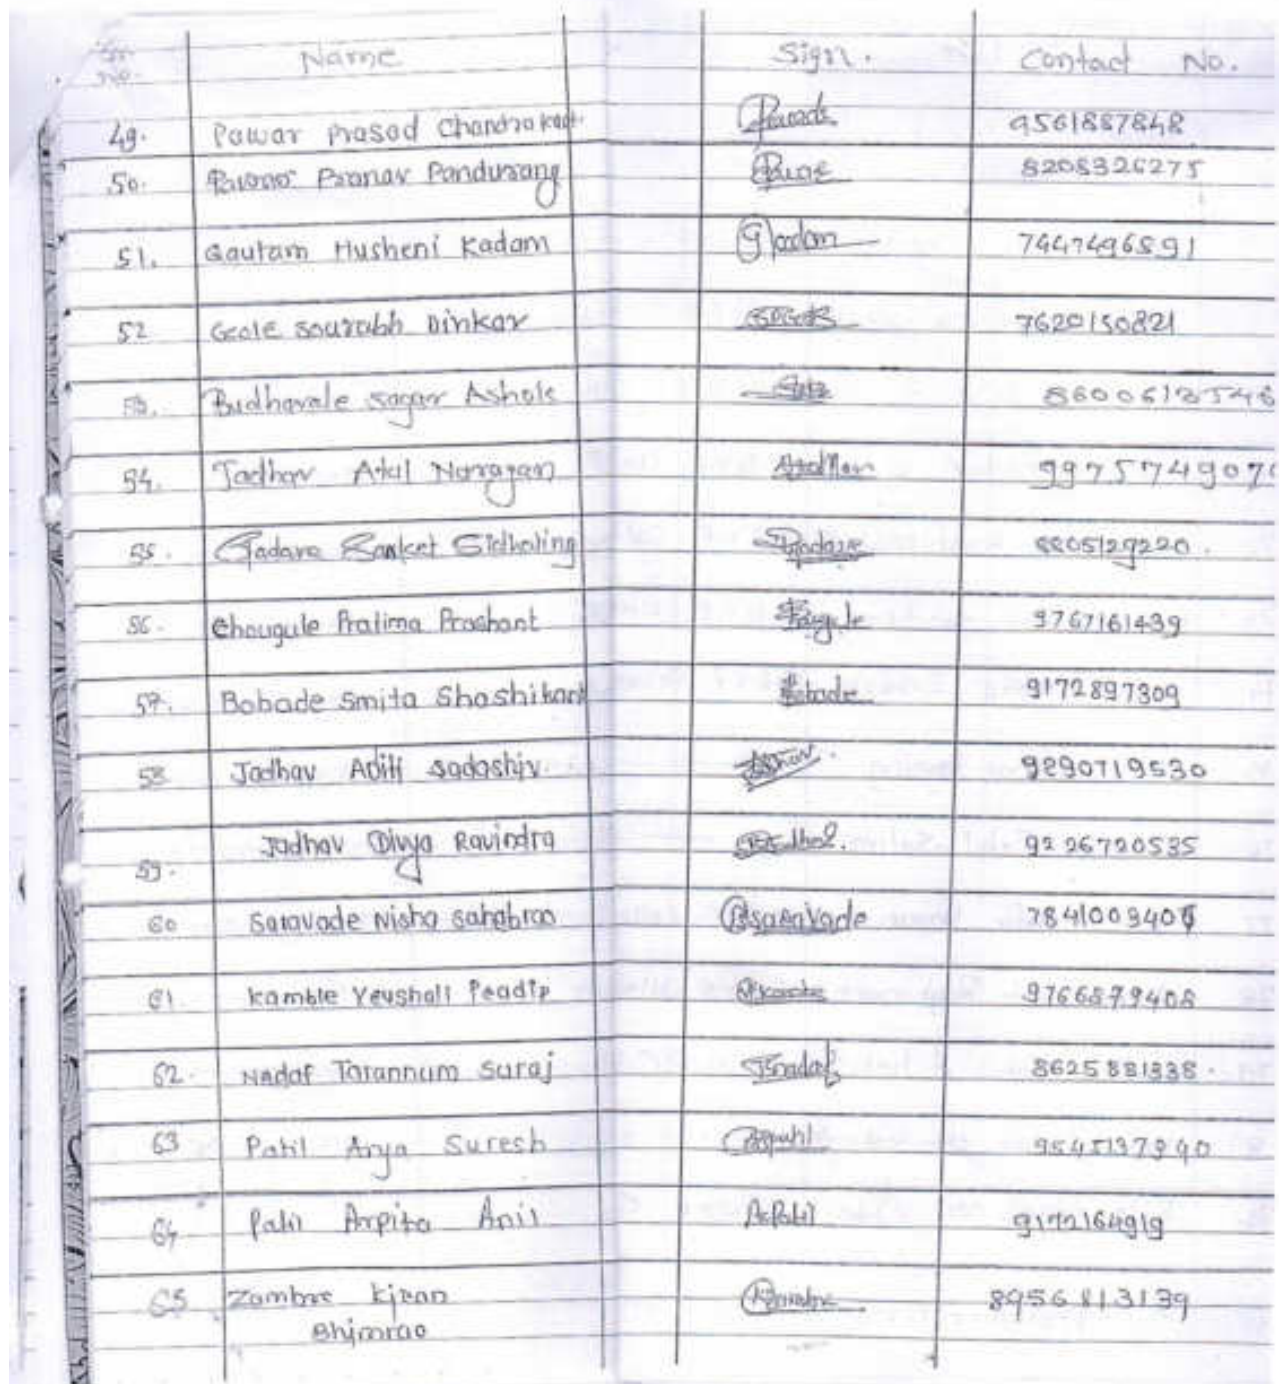 Sr. No. Name Sign. Contact No.
49. Pawar Prasad Chandrakant 9561887848
50. Pawar Pranav Pandurang 8208326275
51. Gautam Husheni Kadam GKadam 7447496891
52 Geole sourabh Dinkar 7620150821
53. Budhavale sagar Ashok
54. Jadhav Atul Narayan
55. Gadave Sanket Sidhaling Gadave 8805129220.
56. Chougule Pratima Prashant 9767161439
57. Bobade Smita Shashikant Bobade 9172897309
58 Jadhav Aditi sadashiv. 9890719530
59. Jadhav Divya Ravindra 9226720535
60 Saravade Nisha sahebrao Saravade
61. Kamble Veushali Peadip 9766879408
62. Nadaf Tarannum Suraj TSnadaf 8625881338.
63 Patil Arya Suresh
64 Patil Arpita Anil APatil 9172164919
65 Zambre Kiran 8956813139
Bhimrao